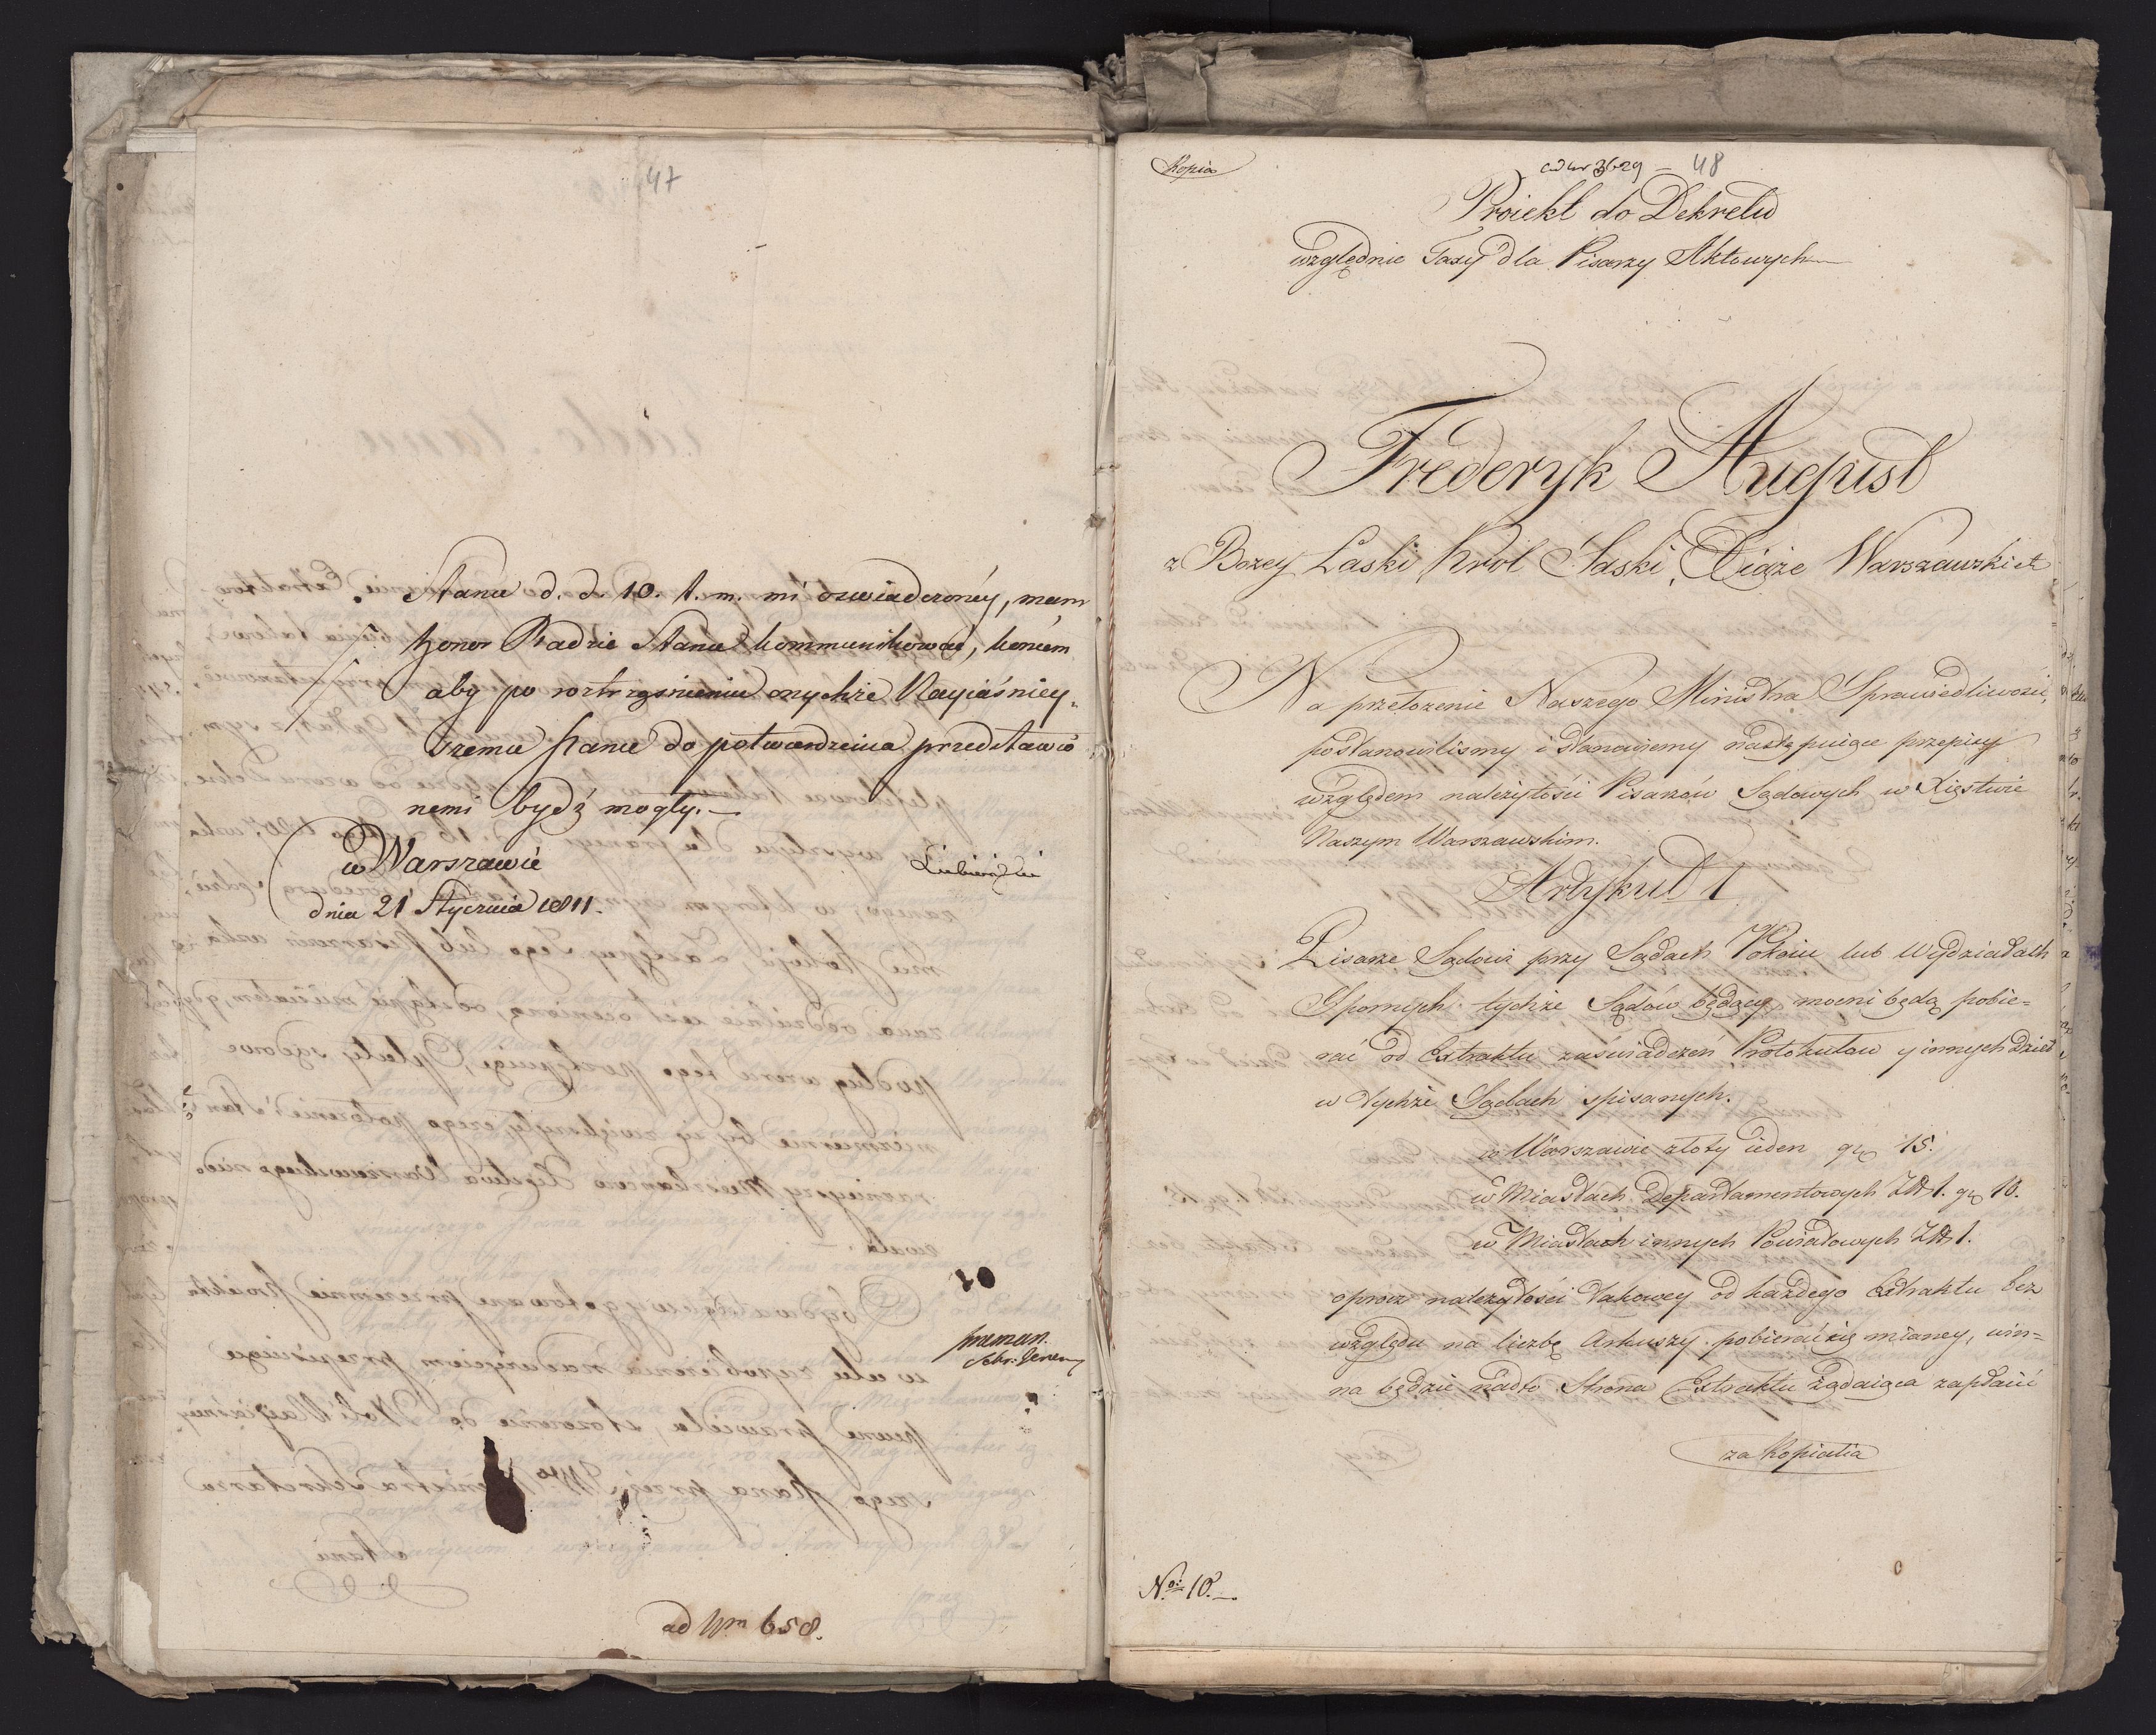 47
Stanu d. d. 10. t. m. mi oswiadczonéy, mam
honor Radzie Stanu kommunikować, koncem
aby po roztrząśnieniu onychże Nayiaśniey-
szemu Panu do potwierdzenia przedstawio
nemi bydź mogły.—
w Warszawie
dnia 21 Stycznia 1811.
Lubieński
10
ad Nrm 658.
Kopia
48
Proiekt do Dekretu
względnie Taxy dla Pisarzy Aktowych
Frederyk August
z Bożey Łaski Król Saski, Xiąże Warszawski et
Na przełożenie Naszego Ministra Sprawiedliwości,
postanowiliśmy i stanowiemy następuiące przepisy
względem należytości Pisarzów Sądowych w Xięstwie
Naszym Warszawskim.
Artykuł 1
Pisarze Sądowi przy Sądach Pokoiu lub Wydziałach
Spornych tychże Sądów będący mocni będą pobie=
rać od Extraktu zaświadczeń Protokułow y innych dzieł
w tychże Sądach spisanych.
w Warszawie złoty ieden gr 15.
w Miastach Departamentowych Zł 1. gr 10.
w Miastach innych Powiatowych Zł 1.
oprocz należytości takowey od każdego Extraktu bez
względu na liczbę Arkuszy pobierać się mianey, win=
na będzie nadto Strona Extraktu żądaiąca zapłacić
za Kopialia
No: 10.